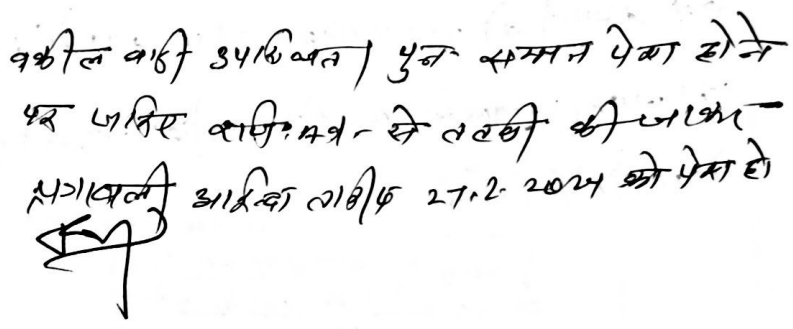 वकील वादी उपस्थित। पुनः सम्मन पेश होने
पर जरिए से तलबी की जावे
पत्रावली आईन्दा तारीख 27.2.2024 को पेश हो